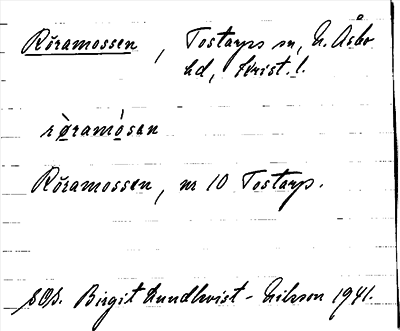 Röramossen, Tostarps sn, N. Åsbo
hd, Krist. l.
rø̀ramòsan
Röramossen, nr 10 Tostarp.
SOS. Birgit Lundkvist-Nilsson 1941.